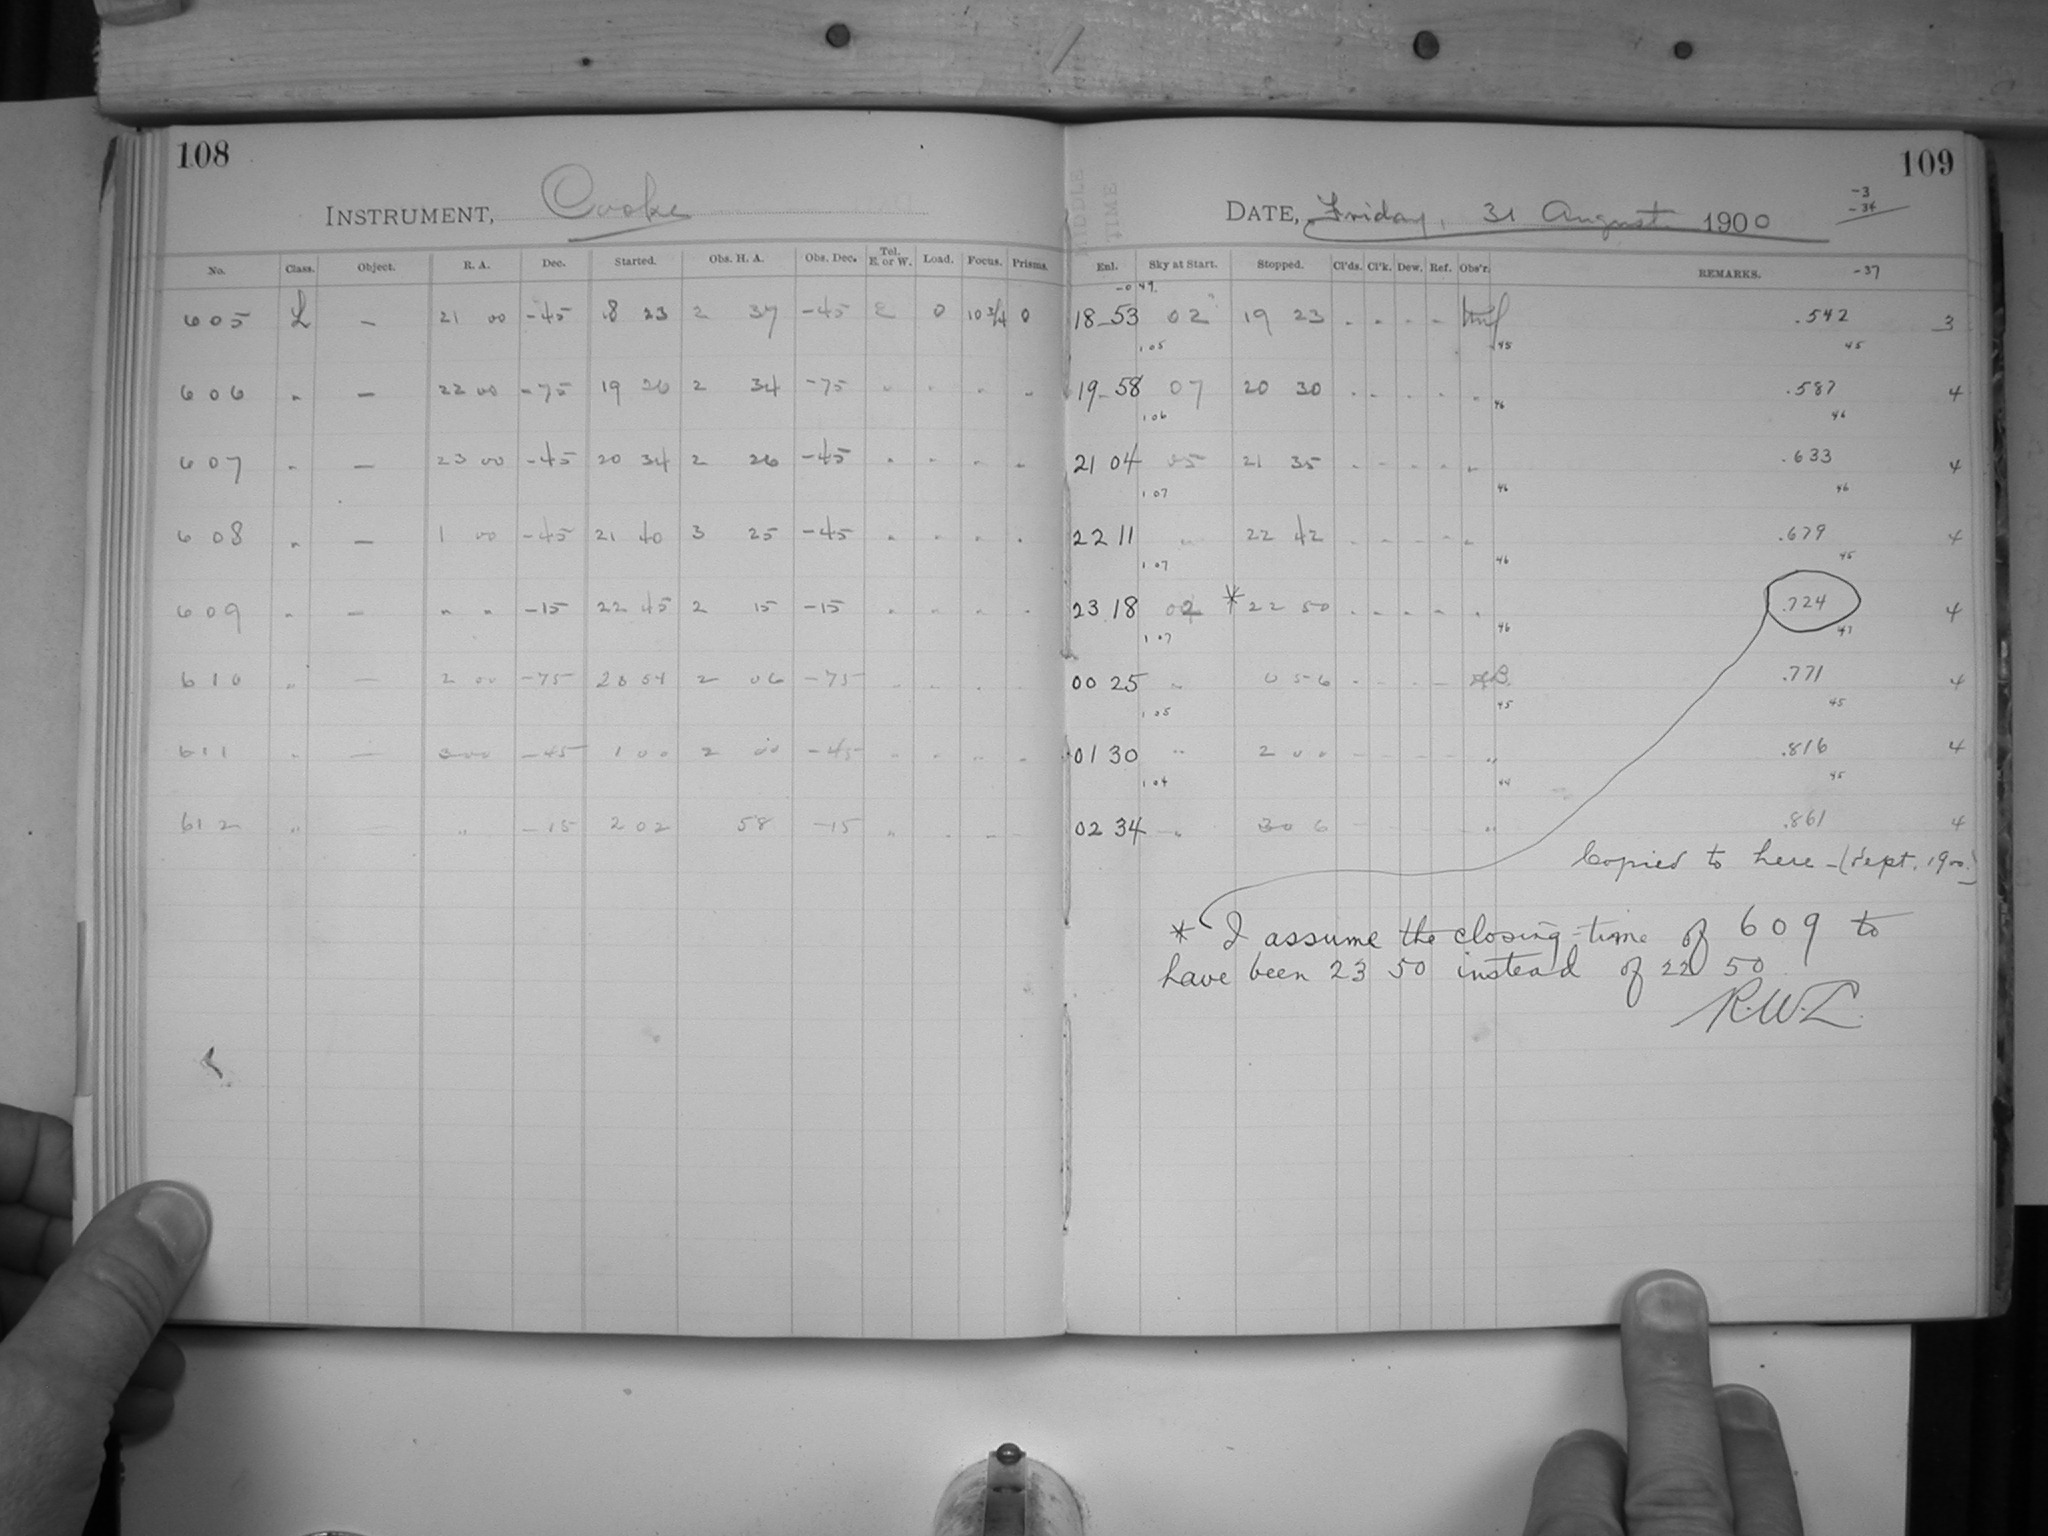 108
109
INSTRUMENT, Cooke
DATE, Friday, 31 August 1900
-3
-34
-37
No. Class. Object. R. A. Dec. Started. Obs. H. A. Obs. Dec. Tel. E. or W. Load. Focus. Prisms. Enl. Sky at Start. Stopped. Cl'ds. Cl'k. Dew. Ref. Obs'r. REMARKS.
MIDDLE
TIME
605 L — 21 00 -45 18 23 2 37 -45 E 0 10 3/4 0 18-53 02 19 23 .542 3
1 05 45 45
606 " — 22 00 -75 19 26 2 34 -75 19-58 07 20 30 .587 4
1 06 46 46
607 " — 23 00 -45 20 34 2 26 -45 21 04 05 21 35 .633 4
1 07 46 46
608 " — 1 00 -45 21 40 3 25 -45 22 11 " 22 42 .679 4
1 07 46 45
609 " — " " -15 22 45 2 15 -15 23 18 * 22 50 .724 4
1 07 46 47
610 " — 2 00 -75 23 54 2 06 -75 00 25 " 0 56 .771 4
1 05 45 45
611 " — 3 00 -45 1 00 2 00 -45 01 30 " 2 00 " .816 4
1 04 44 45
612 " — " -15 2 02 58 -15 02 34 " 3 06 " .861 4
Copied to here - (Sept. 1900.)
* I assume the closing-time of 609 to
have been 23 50 instead of 22 50
R.W.L.